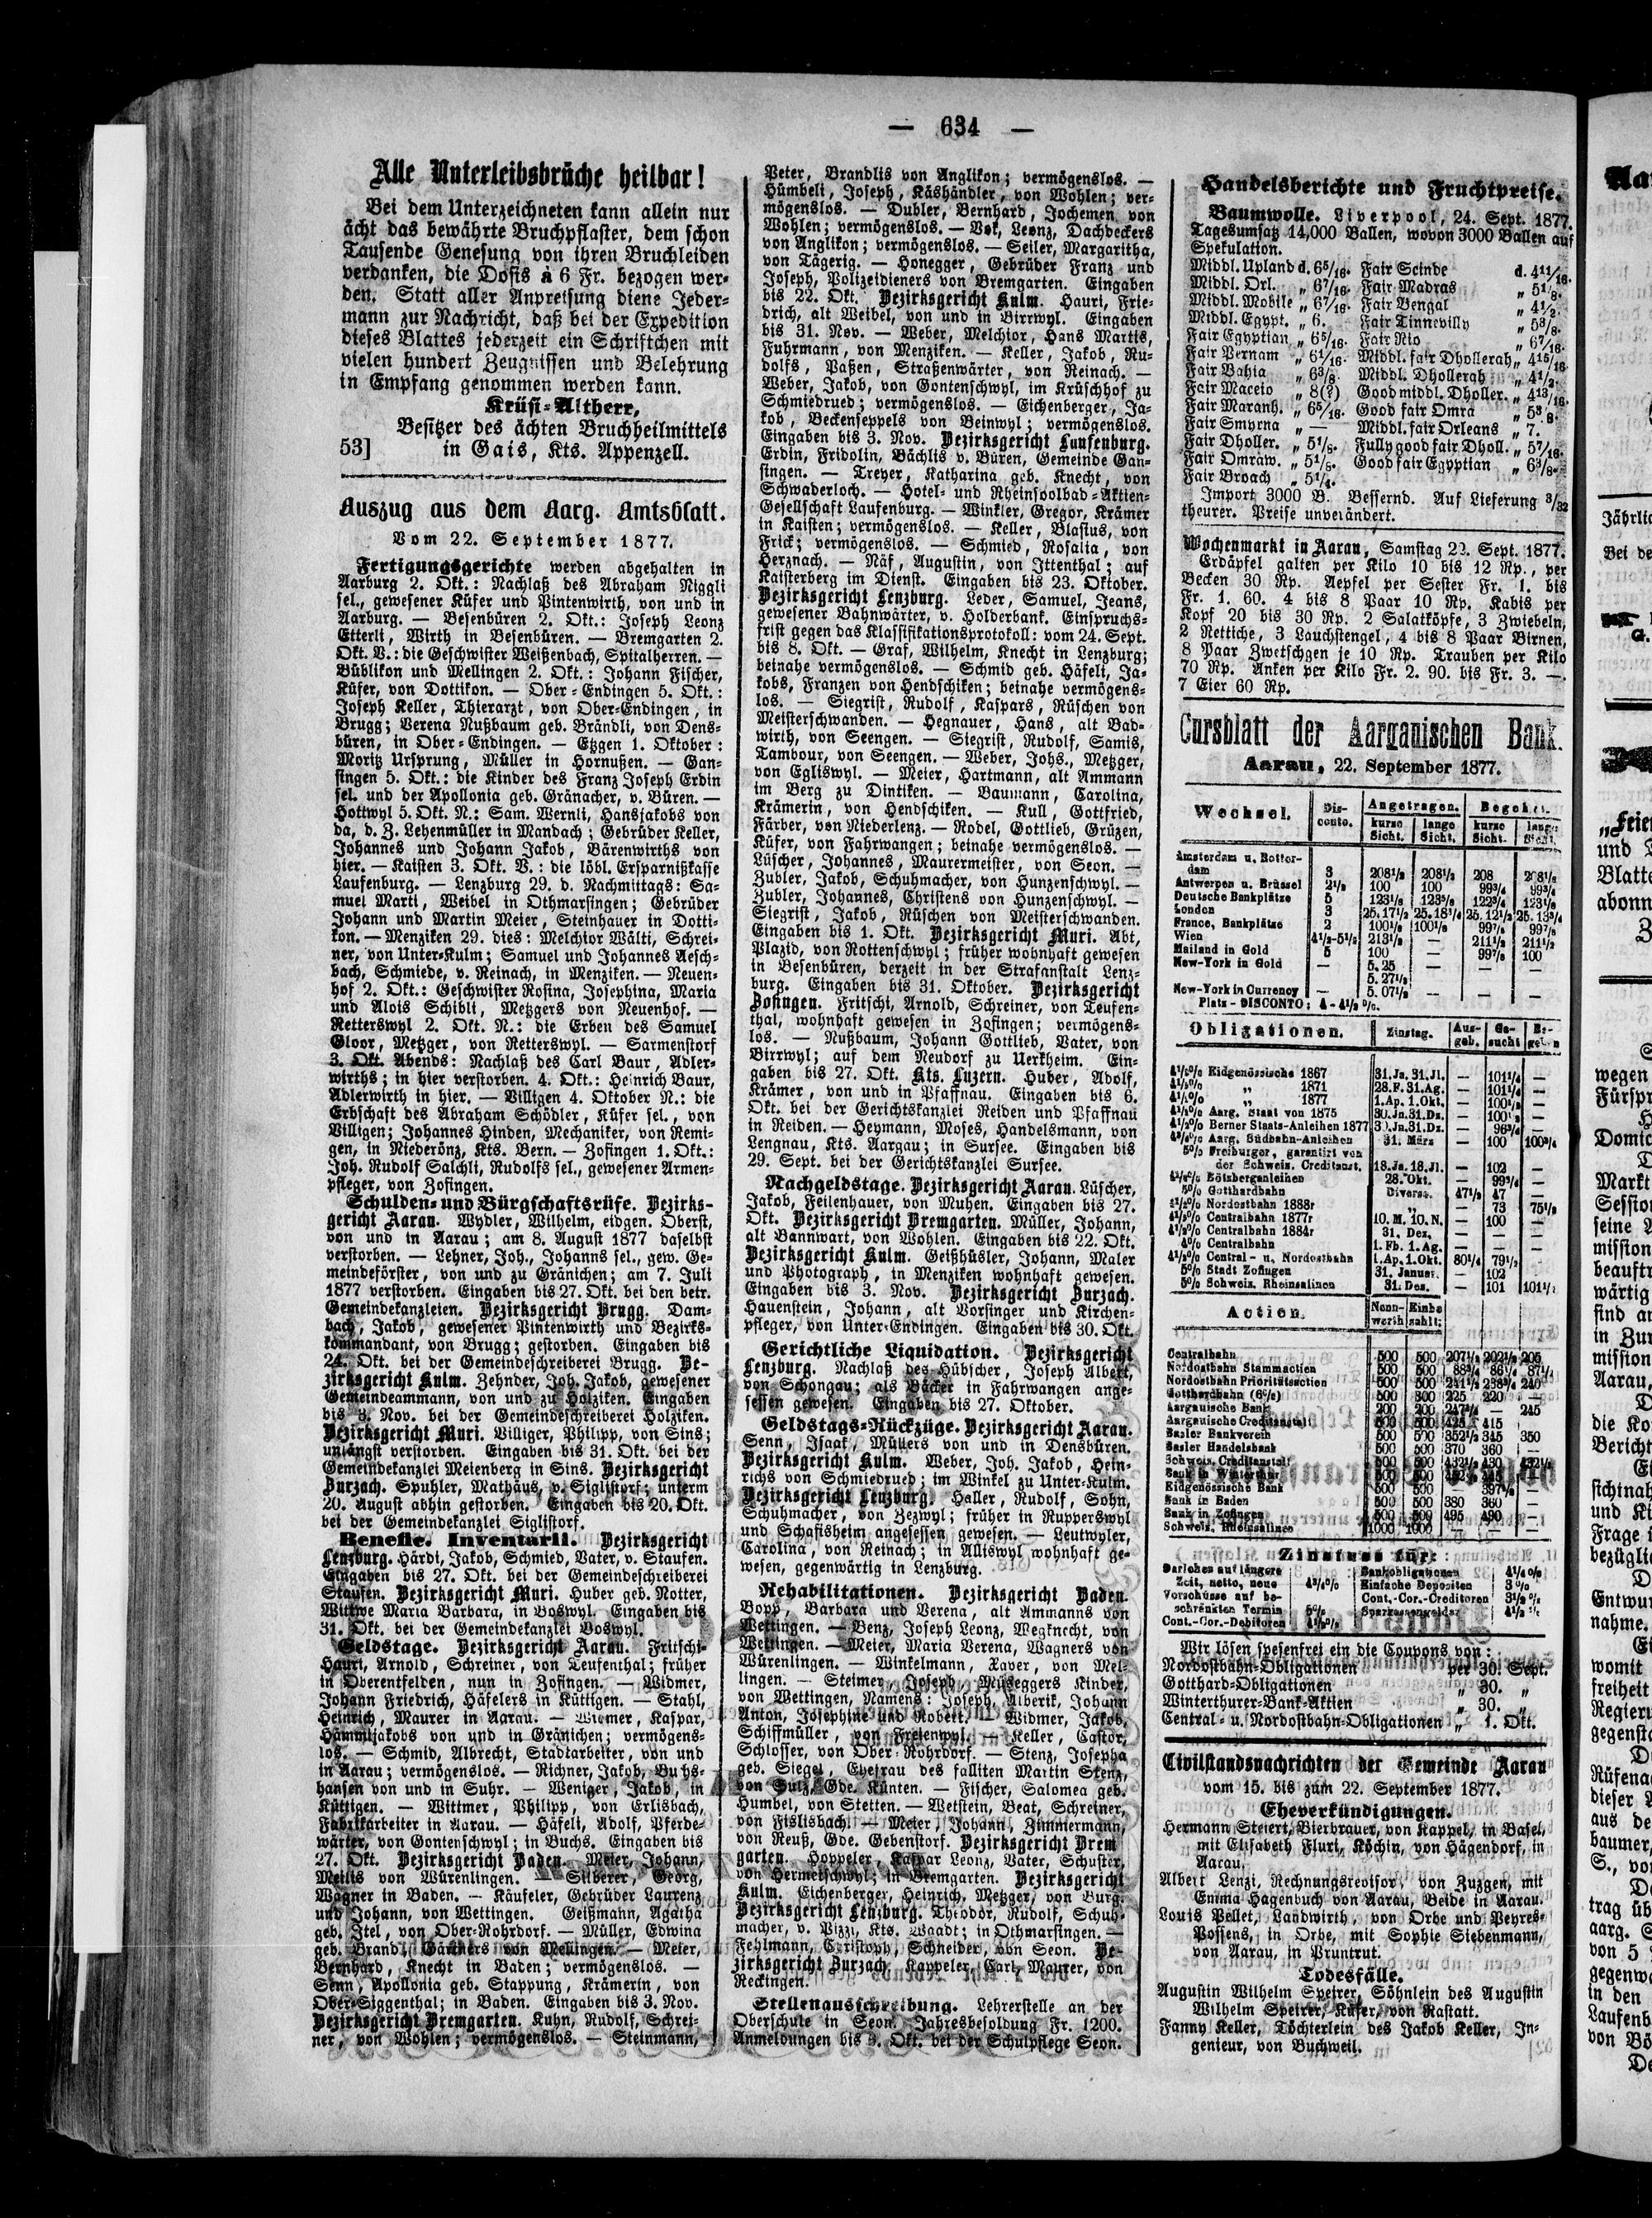 — 634 —
Alle Unterleibsbrüche heilbar!
Bei dem Unterzeichneten kann allein nur
ächt das bewährte Bruchpflaster, dem schon
Tausende Genesung von ihren Bruchleiden
verdanken, die Dosis à 6 Fr. bezogen wer-
den. Statt aller Anpreisung diene Jeder-
mann zur Nachricht, daß bei der Expedition
dieses Blattes jederzeit ein Schriftchen mit
vielen hundert Zeugnissen und Belehrung
in Empfang genommen werden kann.
Krüsi-Altherr,
Besitzer des ächten Bruchheilmittels
53] in Gais, Kts. Appenzell.
Auszug aus dem Aarg. Amtsblatt.
Vom 22. September 1877.
Fertigungsgerichte werden abgehalten in
Aarburg 2. Okt.: Nachlaß des Abraham Niggli
sel., gewesener Küfer und Pintenwirth, von und in
Aarburg. — Besenbüren 2. Okt.: Joseph Leonz
Etterli, Wirth in Besenbüren. — Bremgarten 2.
Okt. V.: die Geschwister Weißenbach, Spitalherren. —
Büblikon und Mellingen 2. Okt.: Johann Fischer,
Küfer, von Dottikon. — Ober-Endingen 5. Okt.:
Joseph Keller, Thierarzt, von Ober-Endingen, in
Brugg; Verena Nußbaum geb. Brändli, von Dens-
büren, in Ober-Endingen. — Etzgen 1. Oktober:
Moritz Ursprung, Müller in Hornußen. — Gan-
singen 5. Okt.: die Kinder des Franz Joseph Erdin
sel. und der Apollonia geb. Gränacher, v. Büren. —
Hottwyl 5. Okt. N.: Sam. Wernli, Hansjakobs von
da, d. Z. Lehenmüller in Mandach; Gebrüder Keller,
Johannes und Johann Jakob, Bärenwirths von
hier. — Kaisten 3. Okt. V.: die löbl. Ersparnißkasse
Laufenburg. — Lenzburg 29. d. Nachmittags: Sa-
muel Marti, Weibel in Othmarsingen; Gebrüder
Johann und Martin Meier, Steinhauer in Dotti-
kon. — Menziken 29. dies: Melchior Wälti, Schrei-
ner, von Unter-Kulm; Samuel und Johannes Aesch-
bach, Schmiede, v. Reinach, in Menziken. — Neuen-
hof 2. Okt.: Geschwister Rosina, Josephina, Maria
und Alois Schibli, Metzgers von Neuenhof. —
Retterswyl 2. Okt. N.: die Erben des Samuel
Gloor, Metzger, von Retterswyl. — Sarmenstorf
3. Okt. Abends: Nachlaß des Carl Baur, Adler-
wirths; in hier verstorben. 4. Okt.: Heinrich Baur,
Adlerwirth in hier. — Villigen 4. Oktober N.: die
Erbschaft des Abraham Schödler, Küfer sel., von
Villigen; Johannes Hinden, Mechaniker, von Remi-
gen, in Niederönz, Kts. Bern. — Zofingen 1. Okt.:
Joh. Rudolf Salchli, Rudolfs sel., gewesener Armen-
pfleger, von Zofingen.
Schulden- und Bürgschaftsrüfe. Bezirks-
gericht Aarau. Wydler, Wilhelm, eidgen. Oberst,
von und in Aarau; am 8. August 1877 daselbst
verstorben. — Lehner, Joh., Johanns sel., gew. Ge-
meindeförster, von und zu Gränichen; am 7. Juli
1877 verstorben. Eingaben bis 27. Okt. bei den betr.
Gemeindekanzleien. Bezirksgericht Brugg. Dam-
bach, Jakob, gewesener Pintenwirth und Bezirks-
kommandant, von Brugg; gestorben. Eingaben bis
24. Okt. bei der Gemeindeschreiberei Brugg. Be-
zirksgericht Kulm. Zehnder, Joh. Jakob, gewesener
Gemeindeammann, von und zu Holziken. Eingaben
bis 3. Nov. bei der Gemeindeschreiberei Holziken.
Bezirksgericht Muri. Villiger, Philipp, von Sins;
unlängst verstorben. Eingaben bis 31. Okt. bei der
Gemeindekanzlei Meienberg in Sins. Bezirksgericht
Zurzach. Spuhler, Mathäus, v. Siglistorf; unterm
20. August abhin gestorben. Eingaben bis 20. Okt.
bei der Gemeindekanzlei Siglistorf.
Benefic. Inventarii. Bezirksgericht
Lenzburg. Härdi, Jakob, Schmied, Vater, v. Staufen.
Eingaben bis 27. Okt. bei der Gemeindeschreiberei
Staufen. Bezirksgericht Muri. Huber geb. Notter,
Wittwe Maria Barbara, in Boswyl. Eingaben bis
31. Okt. bei der Gemeindekanzlei Boswyl.
Geldstage. Bezirksgericht Aarau. Fritschi-
Hauri, Arnold, Schreiner, von Teufenthal; früher
in Oberentfelden, nun in Zofingen. — Widmer,
Johann Friedrich, Häfelers in Küttigen. — Stahl,
Heinrich, Maurer in Aarau. — Widmer, Kaspar,
Hämmijakobs von und in Gränichen; vermögens-
los. — Schmid, Albrecht, Stadtarbeiter, von und
in Aarau; vermögenslos. — Richner, Jakob,
hansen von und in Suhr. — Weniger, Jakob, in
Küttigen. — Wittmer, Philipp, von Erlisbach,
Fabrikarbeiter in Aarau. — Häfeli, Adolf, Pferde-
wärter, von Gontenschwyl; in Buchs. Eingaben bis
27. Okt. Bezirksgericht Baden. Meier, Johann,
Meilis von Würenlingen. — Silberer, Georg,
Wagner in Baden. — Käufeler, Gebrüder Laurenz
und Johann, von Wettingen. Geißmann, Agatha
geb. Itel, von Ober-Rohrdorf. — Müller, Edwina
geb. Brand, Gärtners von Mellingen. — Meier,
Bernhard, Knecht in Baden; vermögenslos. —
Senn, Apollonia geb. Stappung, Krämerin, von
Ober-Siggenthal; in Baden. Eingaben bis 3. Nov.
Bezirksgericht Bremgarten. Kuhn, Rudolf, Schrei-
ner, von Wohlen; vermögenslos. — Steinmann,
Peter, Brandlis von Anglikon; vermögenslos. —
Hümbeli, Joseph, Käshändler, von Wohlen; ver-
mögenslos. — Dubler, Bernhard, Jochemen von
Wohlen; vermögenslos. — Vok, Leonz, Dachdeckers
von Anglikon; vermögenslos. — Seiler, Margaritha,
von Tägerig. — Honegger, Gebrüder Franz und
Joseph, Polizeidieners von Bremgarten. Eingaben
bis 22. Okt. Bezirksgericht Kulm. Hauri, Frie-
drich, alt Weibel, von und in Birrwyl. Eingaben
bis 31. Nov. — Weber, Melchior, Hans Martis,
Fuhrmann, von Menziken. — Keller, Jakob, Ru-
dolfs, Paßen, Straßenwärter, von Reinach. —
Weber, Jakob, von Gontenschwyl, im Krüschhof zu
Schmiedrued; vermögenslos. — Eichenberger, Ja-
kob, Beckenseppels von Beinwyl; vermögenslos.
Eingaben bis 3. Nov. Bezirksgericht Laufenburg.
Erdin, Fridolin, Bächlis v. Büren, Gemeinde Gan-
singen. — Treyer, Katharina geb. Knecht, von
Schwaderloch. — Hotel- und Rheinsoolbad-Aktien-
Gesellschaft Laufenburg. — Winkler, Gregor, Krämer
in Kaisten; vermögenslos. — Keller, Blasius, von
Frick; vermögenslos. — Schmied, Rosalia, von
Herznach. — Näf, Augustin, von Ittenthal; auf
Kaisterberg im Dienst. Eingaben bis 23. Oktober.
Bezirksgericht Lenzburg. Leder, Samuel, Jeans,
gewesener Bahnwärter, v. Holderbank. Einspruchs-
frist gegen das Klassifikationsprotokoll: vom 24. Sept.
bis 8. Okt. — Graf, Wilhelm, Knecht in Lenzburg;
beinahe vermögenslos. — Schmid geb. Häfeli, Ja-
kobs, Franzen von Hendschiken; beinahe vermögens-
los. — Siegrist, Rudolf, Kaspars, Rüschen von
Meisterschwanden. — Hegnauer, Hans, alt Bad-
wirth, von Seengen. — Siegrist, Rudolf, Samis,
Tambour, von Seengen. — Weber, Johs., Metzger,
von Egliswyl. — Meier, Hartmann, alt Ammann
im Berg zu Dintiken. — Baumann, Carolina,
Krämerin, von Hendschiken. — Kull, Gottfried,
Färber, von Niederlenz. — Rodel, Gottlieb, Grüzen,
Küfer, von Fahrwangen; beinahe vermögenslos. —
Lüscher, Johannes, Maurermeister, von Seon. —
Zubler, Jakob, Schuhmacher, von Hunzenschwyl. —
Zubler, Johannes, Christens von Hunzenschwyl. —
Siegrist, Jakob, Rüschen von Meisterschwanden.
Eingaben bis 1. Okt. Bezirksgericht Muri. Abt,
Plazid, von Rottenschwyl; früher wohnhaft gewesen
in Besenbüren, derzeit in der Strafanstalt Lenz-
burg. Eingaben bis 31. Oktober. Bezirksgericht
Zofingen. Fritschi, Arnold, Schreiner, von Teufen-
thal, wohnhaft gewesen in Zofingen; vermögens-
los. — Nußbaum, Johann Gottlieb, Vater, von
Birrwyl; auf dem Neudorf zu Uerkheim. Ein-
gaben bis 27. Okt. Kts. Luzern. Huber, Adolf,
Krämer, von und in Pfaffnau. Eingaben bis 6.
Okt. bei der Gerichtskanzlei Reiden und Pfaffnau
in Reiden. — Heymann, Moses, Handelsmann, von
Lengnau, Kts. Aargau; in Sursee. Eingaben bis
29. Sept. bei der Gerichtskanzlei Sursee.
Nachgeldstage. Bezirksgericht Aarau. Lüscher,
Jakob, Feilenhauer, von Muhen. Eingaben bis 27.
Okt. Bezirksgericht Bremgarten. Müller, Johann,
alt Bannwart, von Wohlen. Eingaben bis 22. Okt.
Bezirksgericht Kulm. Geißhüsler, Johann, Maler
und Photograph, in Menziken wohnhaft gewesen.
Eingaben bis 3. Nov. Bezirksgericht Zurzach.
Hauenstein, Johann, alt Vorsinger und Kirchen-
pfleger, von Unter-Endingen. Eingaben bis 30. Okt.
Gerichtliche Liquidation. Bezirksgericht
Lenzburg. Nachlaß des Hübscher, Joseph Albert,
von Schongau; als Bäcker in Fahrwangen ange-
sessen gewesen. Eingaben bis 27. Oktober.
Geldstags-Rückzüge. Bezirksgericht Aarau.
Senn, Isaak, Müllers von und in Densbüren.
Bezirksgericht Kulm. Weber, Joh. Jakob, Hein-
richs von Schmiedrued; im Winkel zu Unter-Kulm.
Bezirksgericht Lenzburg. Haller, Rudolf, Sohn,
Schuhmacher, von Zezwyl; früher in Rupperswyl
und Schafisheim angesessen gewesen. — Leutwyler,
Carolina, von Reinach; in Alliswyl wohnhaft ge-
wesen, gegenwärtig in Lenzburg.
Rehabilitationen. Bezirksgericht Baden.
Bopp, Barbara und Verena, alt Ammanns von
Wettingen. — Benz, Joseph Leonz, Wegknecht, von
Wettingen. — Meier, Maria Verena, Wagners von
Würenlingen. — Winkelmann, Xaver, von Mel-
lingen. — Steimer, Joseph, Müseggers Kinder,
von Wettingen, Namens: Joseph, Alberik, Johann
Anton, Josephine und Robert. — Widmer, Jakob,
Schiffmüller, von Freienwyl. — Keller, Castor,
Schlosser, von Ober-Rohrdorf. — Stenz, Josepha
geb. Siegel, Ehefrau des falliten Martin Stenz,
von Sulz, Gde. Künten. — Fischer, Salomea geb.
Humbel, von Stetten. — Wetstein, Beat, Schreiner,
von Fislisbach. — Meier, Johann, Zimmermann,
von Reuß, Gde. Gebenstorf. Bezirksgericht Brem
garten. Hoppeler, Kaspar Leonz, Vater, Schuster,
von Hermetschwyl; in Bremgarten. Bezirksgericht
Kulm. Eichenberger, Heinrich, Metzger, von Burg.
Bezirksgericht Lenzburg. Theodor, Rudolf, Schuh-
macher, v. Pizzi, Kts. Waadt; in Othmarsingen. —
Fehlmann, Christoph, Schneider, von Seon. Be-
zirksgericht Zurzach. Kappeler, Carl, Maurer, von
Reckingen.
Stellenausschreibung. Lehrerstelle an der
Oberschule in Seon. Jahresbesoldung Fr. 1200.
Anmeldungen bis 3. Okt. bei der Schulpflege Seon.
Handelsberichte und Fruchtpreise.
Baumwolle. Liverpool, 24. Sept. 1877.
Tagesumsatz 14,000 Ballen, wovon 3000 Ballen auf
Spekulation.
Middl. Upland d. 6 5/16. Fair Scinde d. 4 11/16.
Middl. Orl. „ 6 7/16. Fair Madras „ 5 1/8.
Middl. Mobile „ 6 7/16. Fair Bengal „ 4 1/2.
Middl. Egypt. „ 6. Fair Tinnevilly „ 5 3/8.
Fair Egyptian „ 6 5/16. Fair Rio „ 6 7/16.
Fair Pernam „ 6 1/16. Middl. fair Dhollerah „ 4 15/16.
Fair Bahia „ 6 3/8. Middl. Dhollerah „ 4 1/2.
Fair Maceio „ 8(?) Good middl. Dholler. „ 4 13/16.
Fair Maranh. „ 6 5/16. Good fair Omra „ 5 3/8.
Fair Smyrna „ — Middl. fair Orleans „ 7.
Fair Dholler. „ 5 1/8. Fully good fair Dholl. „ 5 7/16.
Fair Omraw. „ 5 1/8. Good fair Egyptian „ 6 3/8.
Fair Broach „ 5 1/4.
Import 3000 B. Bessernd. Auf Lieferung 3/32
theurer. Preise unverändert.
Wochenmarkt in Aarau, Samstag 22. Sept. 1877.
Erdäpfel galten per Kilo 10 bis 12 Rp., per
Becken 30 Rp. Aepfel per Sester Fr. 1. bis
Fr. 1. 60. 4 bis 8 Paar 10 Rp. Kabis per
Kopf 20 bis 30 Rp. 2 Salatköpfe, 3 Zwiebeln,
2 Rettiche, 3 Lauchstengel, 4 bis 8 Paar Birnen,
8 Paar Zwetschgen je 10 Rp. Trauben per Kilo
70 Rp. Anken per Kilo Fr. 2. 90. bis Fr. 3. —.
7 Eier 60 Rp.
Cursblatt der Aargauischen Bank.
Aarau, 22. September 1877.
Wechsel. Dis-conto. Angetragen. Begehrt.
kurze Sicht. lange Sicht. kurze Sicht. lange Sicht.
Amsterdam u. Rotter-
dam 3 208 1/2 208 1/2 208 208 1/2
Antwerpen u. Brüssel 2 1/2 100 100 99 3/4 99 3/4
Deutsche Bankplätze 5 123 1/2 123 5/8 122 3/4 123 1/8
London 3 25. 17 1/2 25. 18 1/4 25. 12 1/2 25. 13 3/4
France, Bankplätze 2 100 1/8 100 1/8 99 7/8 99 7/8
Wien 4 1/2-5 1/2 213 1/2 — 211 1/2 211 1/2
Mailand in Gold 5 100 — 99 7/8 100
New-York in Gold — 5. 25 — — —
5. 27 1/2
New-York in Currency — 5. 07 1/2 — — —
Platz-DISCONTO: 4-4 1/2 %.
Obligationen. Zinstag. Aus-geb. Ge-sucht Be-geben
4 1/2% Eidgenössische 1867 31. Ja. 31. Jl. — 101 1/4 —
4 1/2% „ 1871 28. F. 31. Ag. — 100 1/4 —
4 1/2% „ 1877 1. Ap. 1. Okt. — 100 1/2 —
4 1/2% Aarg. Staat von 1875 30. Jn. 31. Dz. — 100 1/2 —
4 1/2% Berner Staats-Anleihen 1877 30. Jn. 31. Dz. — 96 3/4 —
4 3/4% Aarg. Südbahn-Anleihen 31. März — 100 100 3/4
5% Freiburger, garantirt von
der Schweiz. Creditanst. 18. Ja. 18. Jl. — 102 —
4 1/2% Bötzberganleihen 28. Okt. — 99 3/4 —
5% Gotthardbahn Diverse. 47 1/2 47 —
4 1/2% Nordostbahn 1888r „ — 73 75 1/2
4 1/2% Centralbahn 1877r 10. M. 10. N. — 100 —
4 1/2% Centralbahn 1884r 31. Dez. — — —
4% Centralbahn 1. Fb. 1. Ag. — — —
4 1/2% Central- u. Nordostbahn 1. Ap. 1. Okt. 80 1/4 79 1/2 —
5% Stadt Zofingen 31. Januar. — 102 —
5% Schweiz. Rheinsalinen 31. Dez. — 101 101 1/2
Actien. Nenn-werth Einbe-zahlt.
Centralbahn 500 500 207 1/2 202 1/2 205
Nordostbahn Stammactien 500 500 88 3/4 86 1/4 87 1/2
Nordostbahn Prioritätsaction 500 500 241 1/4 238 3/4 240
Gotthardbahn (6%) 500 300 225 220 —
Aargauische Bank 200 200 247 3/4 — 245
Aargauische Creditanstalt 500 500 425 415
Basler Bankverein 500 500 352 1/2 345 350
Basler Handelsbank 500 500 370 360 —
Schweiz. Creditanstalt 500 500 432 1/2 430 432 1/2
Bank in Winterthur 500 500
Eidgenössische Bank 500 500 — 397 1/2 —
Bank in Baden 500 500 380 360 —
Bank in Zofingen 500 500 495 490 —
Schweiz. Rheinsalinen 1000 1000 — — —
Zinsfuss für:
Darlehen auf längere Zeit, netto, neue 4 3/4% Bankobligationen 4 1/4%
Einfache Depositen 3%
Vorschüsse auf be-schränkten Termin 5% Cont.-Cor.-Creditoren 3 1/2%
Cont.-Cor.-Debitoren 4 1/2% Sparkassengelder 4 1/2%
Wir lösen spesenfrei ein die Coupons von:
Nordostbahn-Obligationen per 30. Sept.
Gotthard-Obligationen „ 30. „
Winterthurer-Bank-Aktien „ 30. „
Central- u. Nordostbahn-Obligationen „ 1. Okt.
Civilstandsnachrichten der Gemeinde Aarau
vom 15. bis zum 22. September 1877.
Eheverkündigungen.
Hermann Steiert, Bierbrauer, von Kappel, in Basel,
mit Elisabeth Fluri, Köchin, von Hägendorf, in
Aarau.
Albert Lenzi, Rechnungsrevisor, von Zuzgen, mit
Emma Hagenbuch von Aarau, Beide in Aarau.
Louis Pellet, Landwirth, von Orbe und Peyres-
Possens, in Orbe, mit Sophie Siebenmann,
von Aarau, in Pruntrut.
Todesfälle.
Augustin Wilhelm Speirer, Söhnlein des Augustin
Wilhelm Speirer, Küfer, von Rastatt.
Fanny Keller, Töchterlein des Jakob Keller, In-
genieur, von Buchweil.